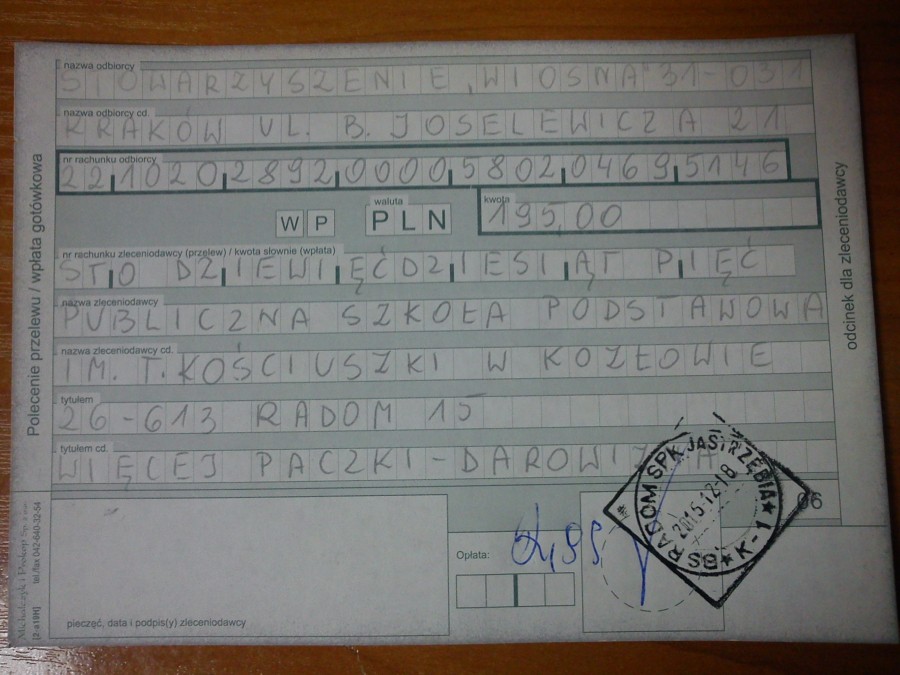 Polecenie przelewu / wpłata gotówkowa
nazwa odbiorcy
STOWARZYSZENIE "WIOSNA" 31-031
nazwa odbiorcy cd.
KRAKÓW UL. B. JOSELEWICZA 21
nr rachunku odbiorcy
22 1020 2892 0000 5802 0469 5146
WP
waluta
PLN
kwota
195,00
nr rachunku zleceniodawcy (przelew) / kwota słownie (wpłata)
STO DZIEWIĘĆDZIESIĄT PIĘĆ
nazwa zleceniodawcy
PUBLICZNA SZKOŁA PODSTAWOWA
nazwa zleceniodawcy cd.
IM. T. KOŚCIUSZKI W KOZŁOWIE
tytułem
26-613 RADOM 15
tytułem cd.
WIĘCEJ PACZKI - DAROWIZNA
odcinek dla zleceniodawcy
06
BS RADOM SPK JASTRZĘBIA
2015-12-18
K-1
Opłata:
2,99
pieczęć, data i podpis(y) zleceniodawcy
Michalczyk i Prokop Sp. z o.o.
tel./fax 042-640-32-54